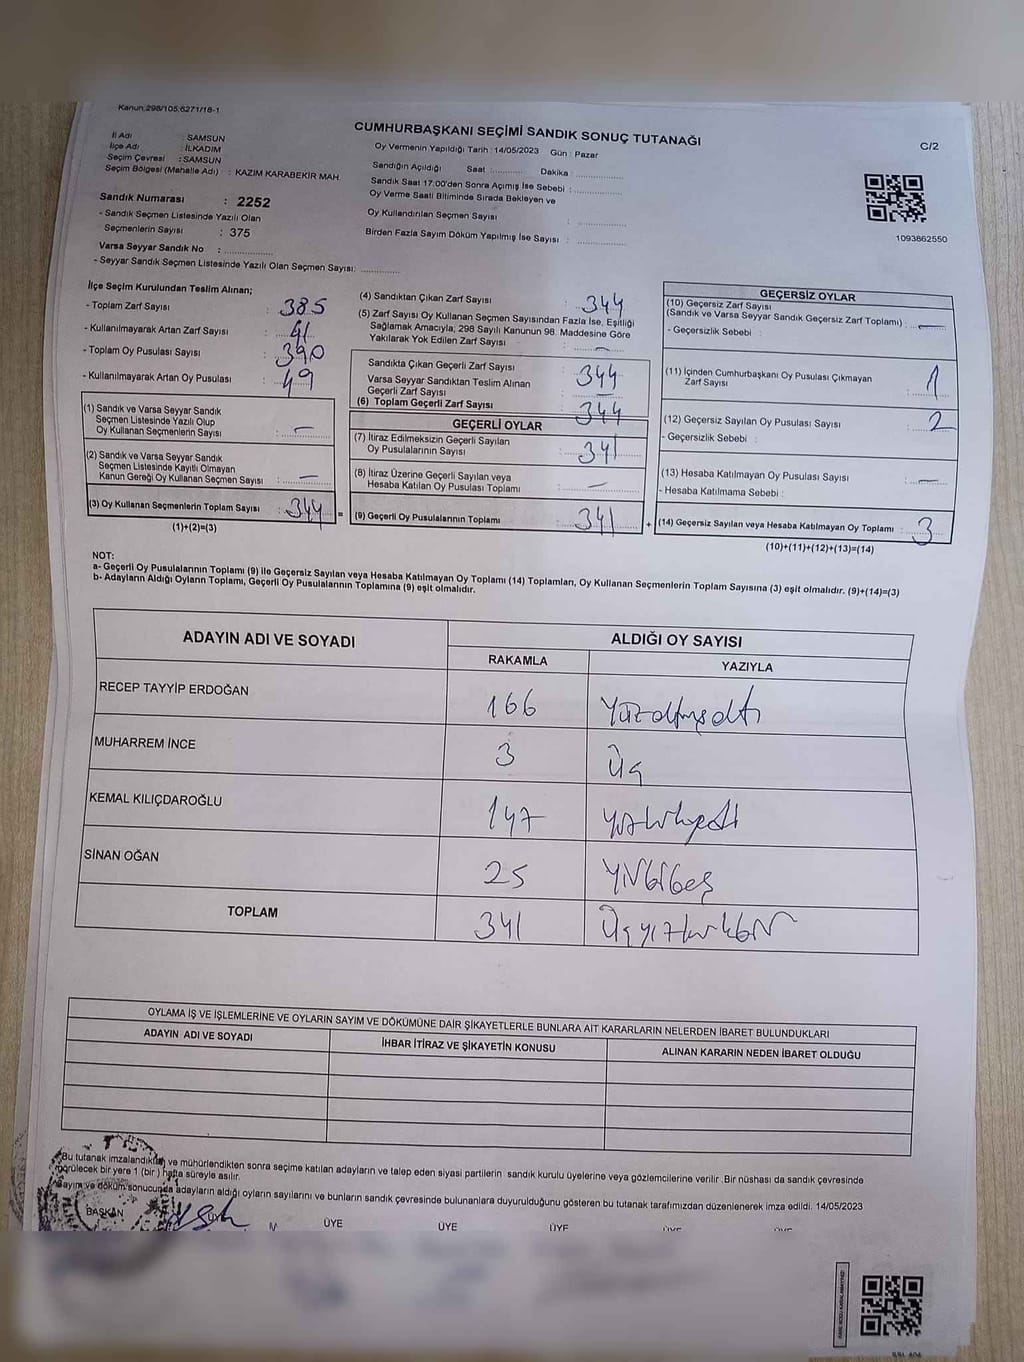 Kanun:298/105;6271/18-1
CUMHURBAŞKANI SEÇİMİ SANDIK SONUÇ TUTANAĞI
C/2
İl Adı : SAMSUN
İlçe Adı : İLKADIM
Seçim Çevresi : SAMSUN
Seçim Bölgesi (Mahalle Adı) : KAZIM KARABEKİR MAH.
Sandık Numarası : 2252
- Sandık Seçmen Listesinde Yazılı Olan
Seçmenlerin Sayısı : 375
Varsa Seyyar Sandık No :
- Seyyar Sandık Seçmen Listesinde Yazılı Olan Seçmen Sayısı:
Oy Vermenin Yapıldığı Tarih : 14/05/2023 Gün : Pazar
Sandığın Açıldığı Saat : Dakika
Sandık Saat 17:00'den Sonra Açımış İse Sebebi :
Oy Verme Saati Bitiminde Sırada Bekleyen ve
Oy Kullandırılan Seçmen Sayısı :
Birden Fazla Sayım Döküm Yapılmış İse Sayısı :
1093862550
İlçe Seçim Kurulundan Teslim Alınan;
- Toplam Zarf Sayısı : 385
- Kullanılmayarak Artan Zarf Sayısı : 41
- Toplam Oy Pusulası Sayısı : 390
- Kullanılmayarak Artan Oy Pusulası : 49
(1) Sandık ve Varsa Seyyar Sandık
Seçmen Listesinde Yazılı Olup
Oy Kullanan Seçmenlerin Sayısı : –
(2) Sandık ve Varsa Seyyar Sandık
Seçmen Listesinde Kayıtlı Olmayan
Kanun Gereği Oy Kullanan Seçmen Sayısı : –
(3) Oy Kullanan Seçmenlerin Toplam Sayısı : 344 =
(1)+(2)=(3)
(4) Sandıktan Çıkan Zarf Sayısı : 344
(5) Zarf Sayısı Oy Kullanan Seçmen Sayısından Fazla İse, Eşitliği
Sağlamak Amacıyla; 298 Sayılı Kanunun 98. Maddesine Göre
Yakılarak Yok Edilen Zarf Sayısı : –
Sandıkta Çıkan Geçerli Zarf Sayısı : 344
Varsa Seyyar Sandıktan Teslim Alınan
Geçerli Zarf Sayısı : –
(6) Toplam Geçerli Zarf Sayısı : 344
GEÇERLİ OYLAR
(7) İtiraz Edilmeksizin Geçerli Sayılan
Oy Pusulalarının Sayısı : 341
(8) İtiraz Üzerine Geçerli Sayılan veya
Hesaba Katılan Oy Pusulası Toplamı : –
(9) Geçerli Oy Pusulalarının Toplamı : 341 +
GEÇERSİZ OYLAR
(10) Geçersiz Zarf Sayısı
(Sandık ve Varsa Seyyar Sandık Geçersiz Zarf Toplamı) : –
- Geçersizlik Sebebi :
(11) İçinden Cumhurbaşkanı Oy Pusulası Çıkmayan
Zarf Sayısı : 1
(12) Geçersiz Sayılan Oy Pusulası Sayısı : 2
- Geçersizlik Sebebi :
(13) Hesaba Katılmayan Oy Pusulası Sayısı : –
- Hesaba Katılmama Sebebi :
(14) Geçersiz Sayılan veya Hesaba Katılmayan Oy Toplamı : 3
(10)+(11)+(12)+(13)=(14)
NOT:
a- Geçerli Oy Pusulalarının Toplamı (9) ile Geçersiz Sayılan veya Hesaba Katılmayan Oy Toplamı (14) Toplamları, Oy Kullanan Seçmenlerin Toplam Sayısına (3) eşit olmalıdır. (9)+(14)=(3)
b- Adayların Aldığı Oyların Toplamı, Geçerli Oy Pusulalarının Toplamına (9) eşit olmalıdır.
ADAYIN ADI VE SOYADI ALDIĞI OY SAYISI
RAKAMLA YAZIYLA
RECEP TAYYİP ERDOĞAN 166 yüzaltmışaltı
MUHARREM İNCE 3 Üç
KEMAL KILIÇDAROĞLU 147 yüzkırkyedi
SİNAN OĞAN 25 yirmibeş
TOPLAM 341 Üçyüzkırkbir
OYLAMA İŞ VE İŞLEMLERİNE VE OYLARIN SAYIM VE DÖKÜMÜNE DAİR ŞİKAYETLERLE BUNLARA AİT KARARLARIN NELERDEN İBARET BULUNDUKLARI
ADAYIN ADI VE SOYADI İHBAR İTİRAZ VE ŞİKAYETİN KONUSU ALINAN KARARIN NEDEN İBARET OLDUĞU
Bu tutanak imzalandıktan ve mühürlendikten sonra seçime katılan adayların ve talep eden siyasi partilerin sandık kurulu üyelerine veya gözlemcilerine verilir. Bir nüshası da sandık çevresinde
görülecek bir yere 1 (bir) hafta süreyle asılır.
Sayım ve döküm sonucunda adayların aldığı oyların sayılarını ve bunların sandık çevresinde bulunanlara duyurulduğunu gösteren bu tutanak tarafımızdan düzenlenerek imza edildi. 14/05/2023
BAŞKAN ÜYE ÜYE ÜYE ÜYE